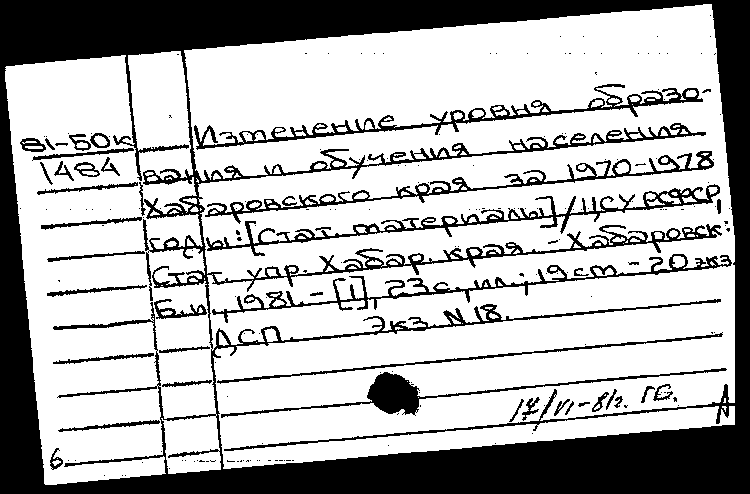 81-50к Изменение уровня образо-
1484 вания и обучения населения
Хабаровского края за 1970-1978
годы: [Стат. материалы] / ЦСУ РСФСР,
Стат. упр. Хабар. края. - Хабаровск:
Б.и., 1981. - [1], 23с., ил.; 19 ст. - 20 экз.
ДСП. Экз. N 18.
17/VI-81г. ГБ.
6